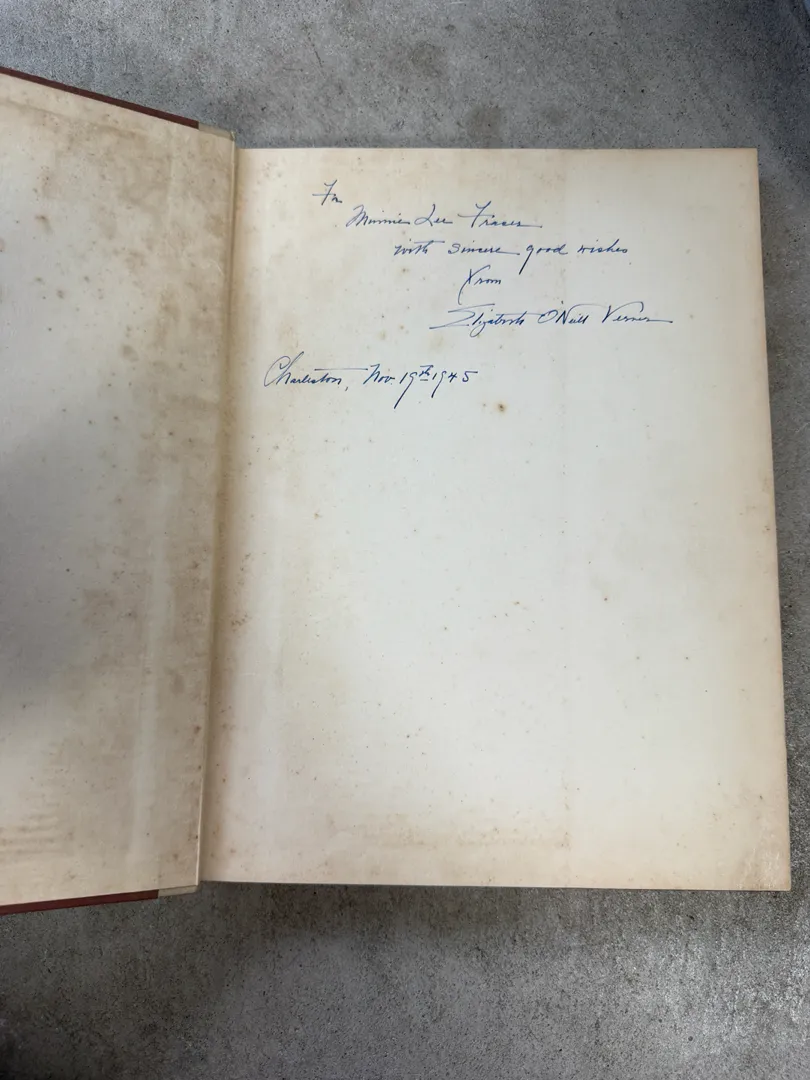 For
Minnie Lee Fraser
with sincere good wishes
from
Elizabeth O'Neill Verner
Charleston, Nov. 19th 1945